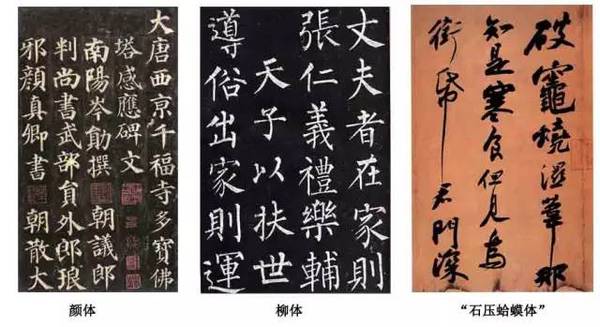 大唐西京千福寺多寶佛
塔感應碑文
南陽岑勛撰 朝議郎
判尚書武部員外郎琅
邪顏真卿書 朝散大
颜体
丈夫者在家則
張仁義禮樂輔
天子以扶世
導俗出家則運
柳体
破竈燒濕葦那
知是寒食但見烏
銜帋 君門深
“石压蛤蟆体”